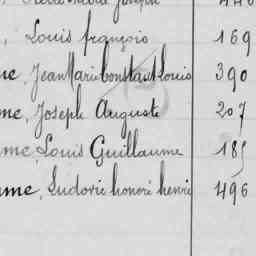 , Louis françois 169
ue, Jean Marie Constant Louis 390
me, Joseph Auguste 207
me, Louis Guillaume 185
ume, Ludovic honoré henri 496